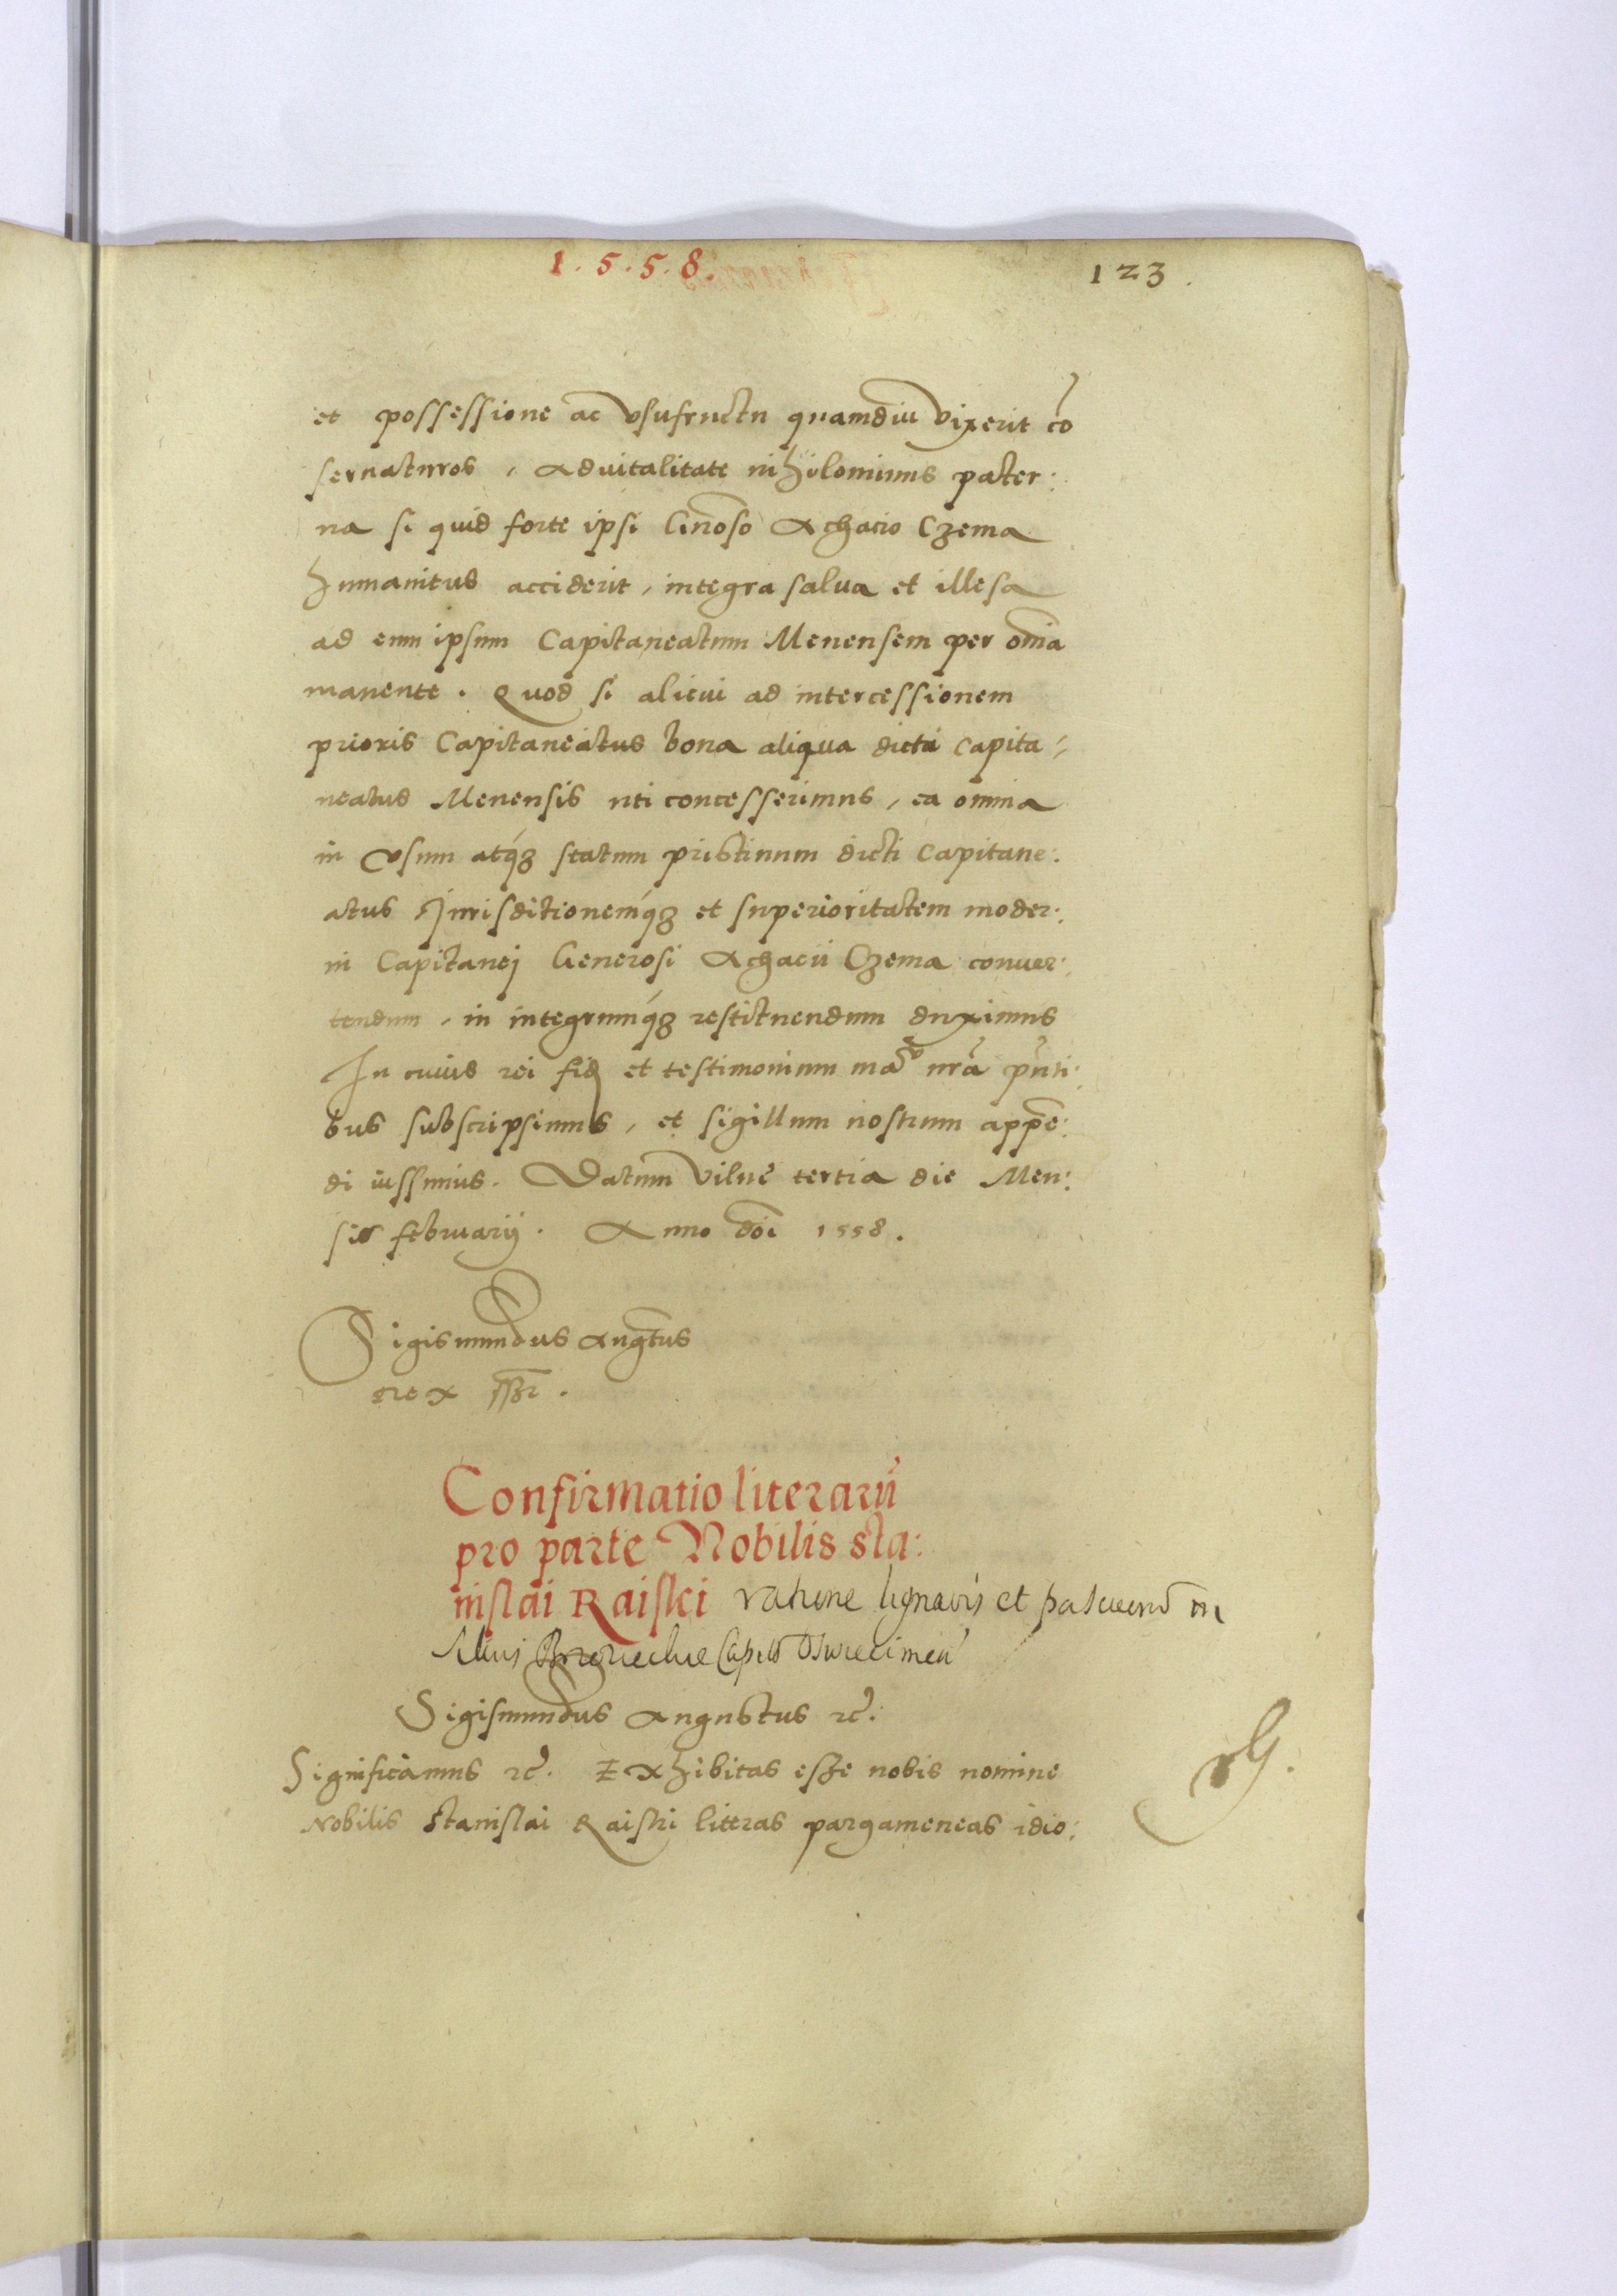 1.5.5.8.
123.
et possessione ac vsufructu quamdiu vixerit cō
seruaturos, aduitalitate nihilominus pater:
na si quid forte ipsi Gn̄oso Achacio Czema
humanitus acciderit, integra salua et illesa
ad eum ipsum Capitaneatum Menensem per om̄ia
manente. Quod si alicui ad intercessionem
prioris Capitaneatus bona aliqua dicti Capita:
neatus Menensis uti concesserimus, ea omnia
in vsum atq́ꝫ statum pristinum dicti Capitane:
atus Jurisditionemq́ꝫ et superioritatem moder:
ni Capitanej Generosi Achacii Czema conuer:
tendum, in integrumq́ꝫ restituendum duximus
In cuius rei fid et testimonium ma͞ nr̄a pn̄ti:
bus subscripsimus, et sigillum nostrum appē:
di iussimus. Datum Vilne tertia die Men:
sis februarij. Anno dōi 1558.
Sigismundus Augtus
rex ssr̄.
Confirmatio literarū
pro parte Nobilis sta:
nislai Raiski ratione lignationis et pascuend in
siluis
Sigismundus Augustus ꝛc̄.
Significamus ꝛc̄. Exhibitas esse nobis nomine
Nobilis Stanislai Raiski literas pargameneas idio: